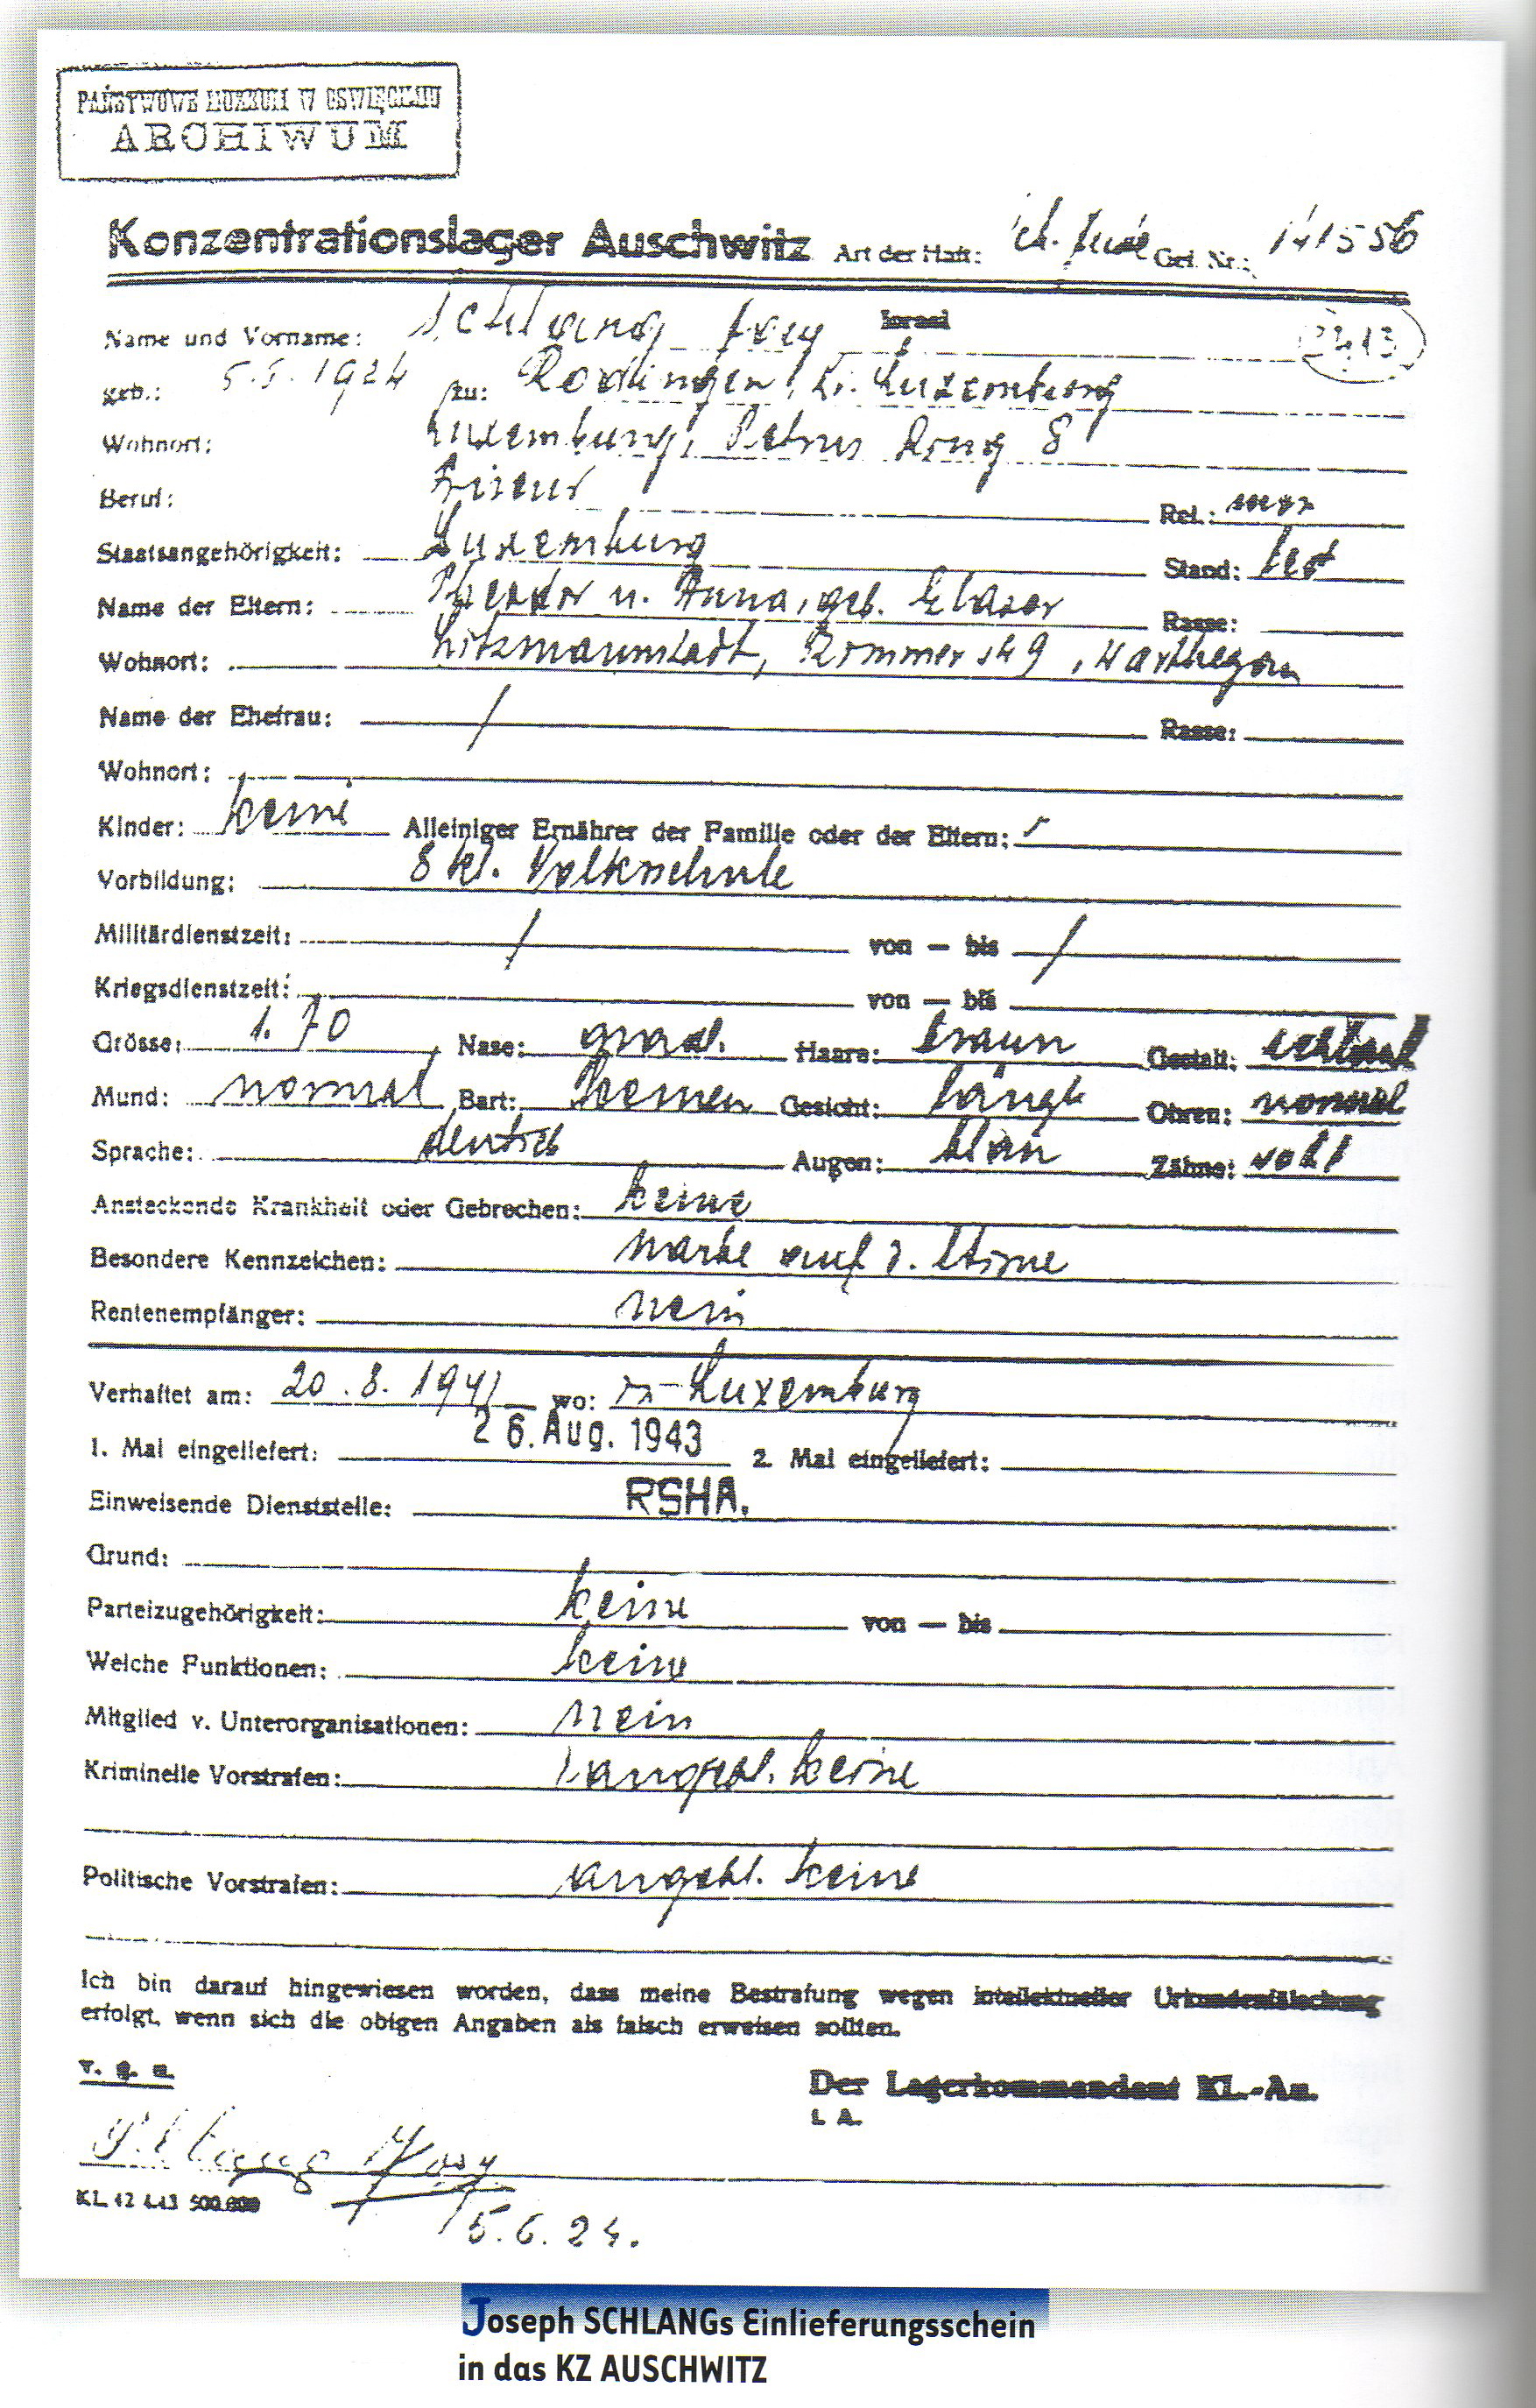 PAŃSTWOWE MUZEUM W OŚWIĘCIMIU
ARCHIWUM
Konzentrationslager Auschwitz Art der Haft: Gef. Nr.: 141556
Name und Vorname: Schlang Josy Israel 2413
geb.: 1924 zu: Rodingen, Kr. Luxemburg
Wohnort: Luxemburg, Petrus Ring 8
Beruf: Friseur Rel.: mos
Staatsangehörigkeit: Luxemburg Stand: led
Name der Eltern: u. Anna, geb. Rasse:
Wohnort: Litzmannstadt, 9, Warthegau
Name der Ehefrau: / Rasse:
Wohnort:
Kinder: keine Alleiniger Ernährer der Familie oder der Eltern:
Vorbildung: 8 kl. Volksschule
Militärdienstzeit: / von — bis /
Kriegsdienstzeit: von — bis
Grösse: 1.70 Nase: grad. Haare: braun Gestalt: schlank
Mund: normal Bart: keinen Gesicht: längl. Ohren: normal
Sprache: deutsch Augen: blau Zähne:
Ansteckende Krankheit oder Gebrechen: keine
Besondere Kennzeichen: Narbe auf d. Stirne
Rentenempfänger: nein
Verhaftet am: 20.8.1941 wo: in Luxemburg
1. Mal eingeliefert: 26. Aug. 1943 2. Mal eingeliefert:
Einweisende Dienststelle: RSHA.
Grund:
Parteizugehörigkeit: keine von — bis
Welche Funktionen: keine
Mitglied v. Unterorganisationen: nein
Kriminelle Vorstrafen: angebl. keine
Politische Vorstrafen: angebl. keine
Ich bin darauf hingewiesen worden, dass meine Bestrafung wegen intellektueller Urkundenfälschung
erfolgt, wenn sich die obigen Angaben als falsch erweisen sollten.
v. g. u.
Der Lagerkommandant KL.-Au.
i. A.
Schlang Josy
KL 42 4.43 500.000
5.6.24.
Joseph SCHLANGs Einlieferungsschein
in das KZ AUSCHWITZ